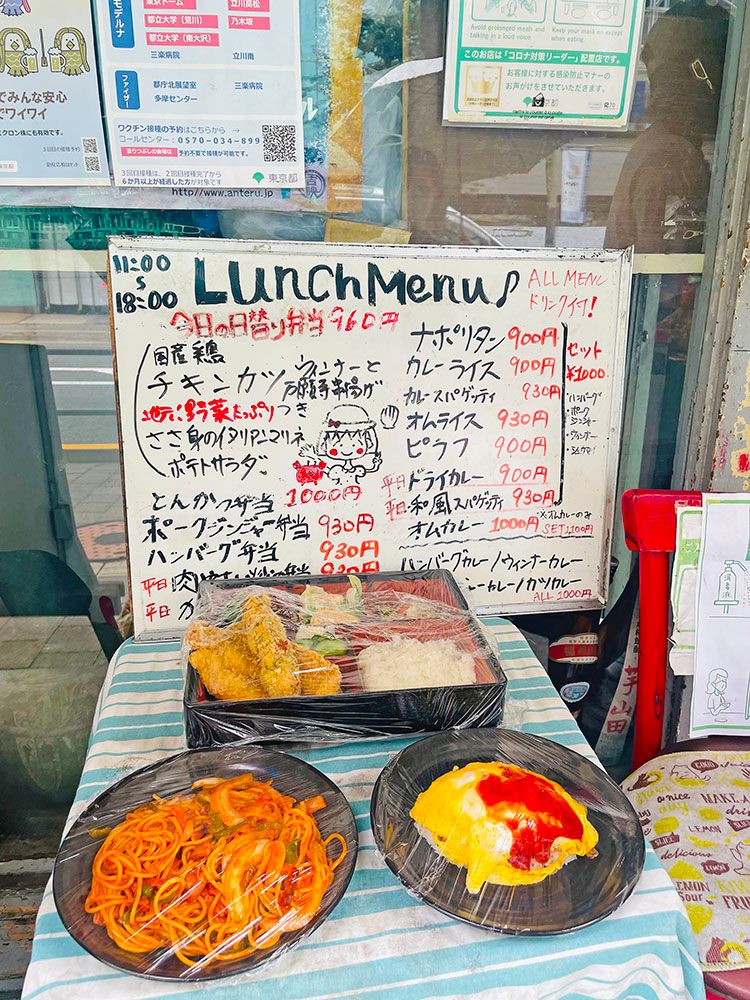 でみんな安心
でワイワイ
クロン株にも有効です。
3回目の接種予約
モデルナ
東京ドーム
立川高松
都立大学(荒川)
乃木坂
都立大学(南大沢)
三楽病院
立川南
ファイザー
都庁北展望室
三楽病院
多摩センター
ワクチン接種の予約はこちらから →
コールセンター:0570-034-899
予約不要で接種が可能です。
3回目接種は、2回目接種完了から
6か月以上が経過した方が対象です
東京都
http://www.anteru.jp
Avoid prolonged meals and talking in a loud voice.
Keep your mask on except when eating.
このお店は「コロナ対策リーダー」配置店です。
お客様に対する感染防止マナーの
お声がけをさせていただきます。
東京都
R70
11:00
18:00
Lunch Menu♪
ALL MENU
ドリンク付!
今日の日替り弁当 960円
国産鶏
チキンカツ
ウィンナーと
万願寺串揚げ
地元野菜たっぷりつき
ささ身のイタリアンマリネ
ポテトサラダ
とんかつ弁当 1000円
ポークジンジャー弁当 930円
ハンバーグ弁当 930円
平日 肉
930円
平日 カ
ナポリタン 900円
カレーライス 900円
カレースパゲッティ 930円
オムライス 930円
ピラフ 900円
平日 ドライカレー 900円
平日 和風スパゲッティ 930円
オムカレー 1000円
セット
¥1000
・ハンバーグ
・ポーク
ジンジャー
・ウィンナー
※オムカレーのみ
SET1,100円
ハンバーグカレー/ウィンナーカレー
カレー/カツカレー
ALL 1000円
消毒
芋
山田
GOOD
a nice
MAKE
LEMON
SLICE
LEMON
delicious
Sour
FRU